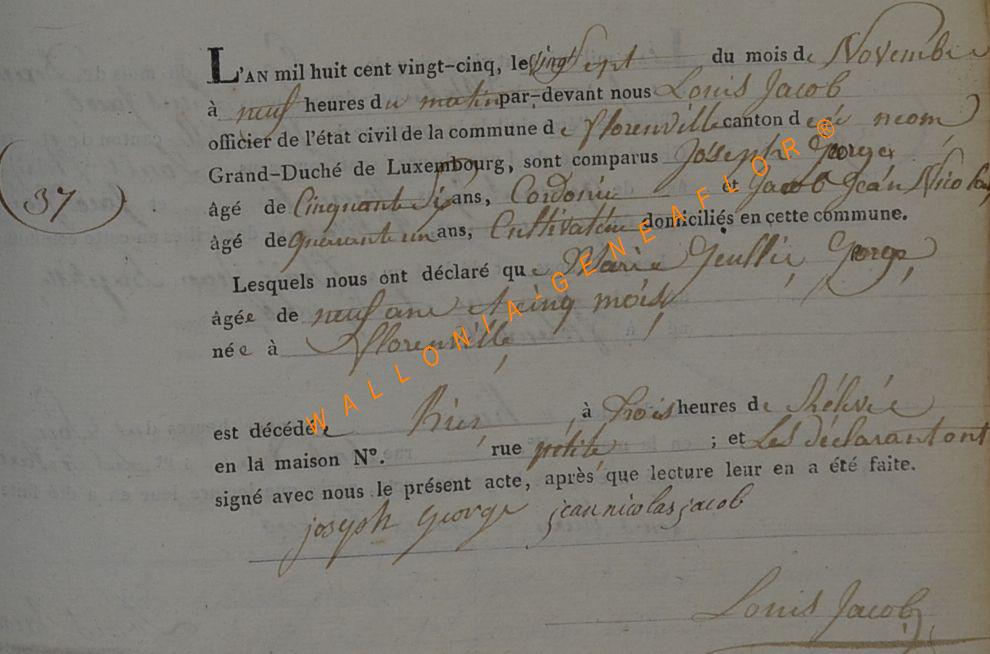 L'AN mil huit cent vingt-cinq, le vingt Sept du mois de Novembre
à neuf heures du matin par-devant nous Louis Jacob
officier de l'état civil de la commune de florenville canton de idem
Grand-Duché de Luxembourg, sont comparus Joseph George
37
âgé de Cinquant Six ans, Cordonie et Jacob Jean Nicolas
âgé de quarante un ans, Cultivateur domiciliés en cette commune.
Lesquels nous ont déclaré que Marie George
âgée de neuf ans et cinq mois
née à florenville
est décédée hier à trois heures de Rélevée
en la maison N°. rue petite ; et Les déclarant ont
signé avec nous le présent acte, après que lecture leur en a été faite.
joseph George jean nicolas jacob
Louis Jacob
WALLONIA-GENEAFLOR®